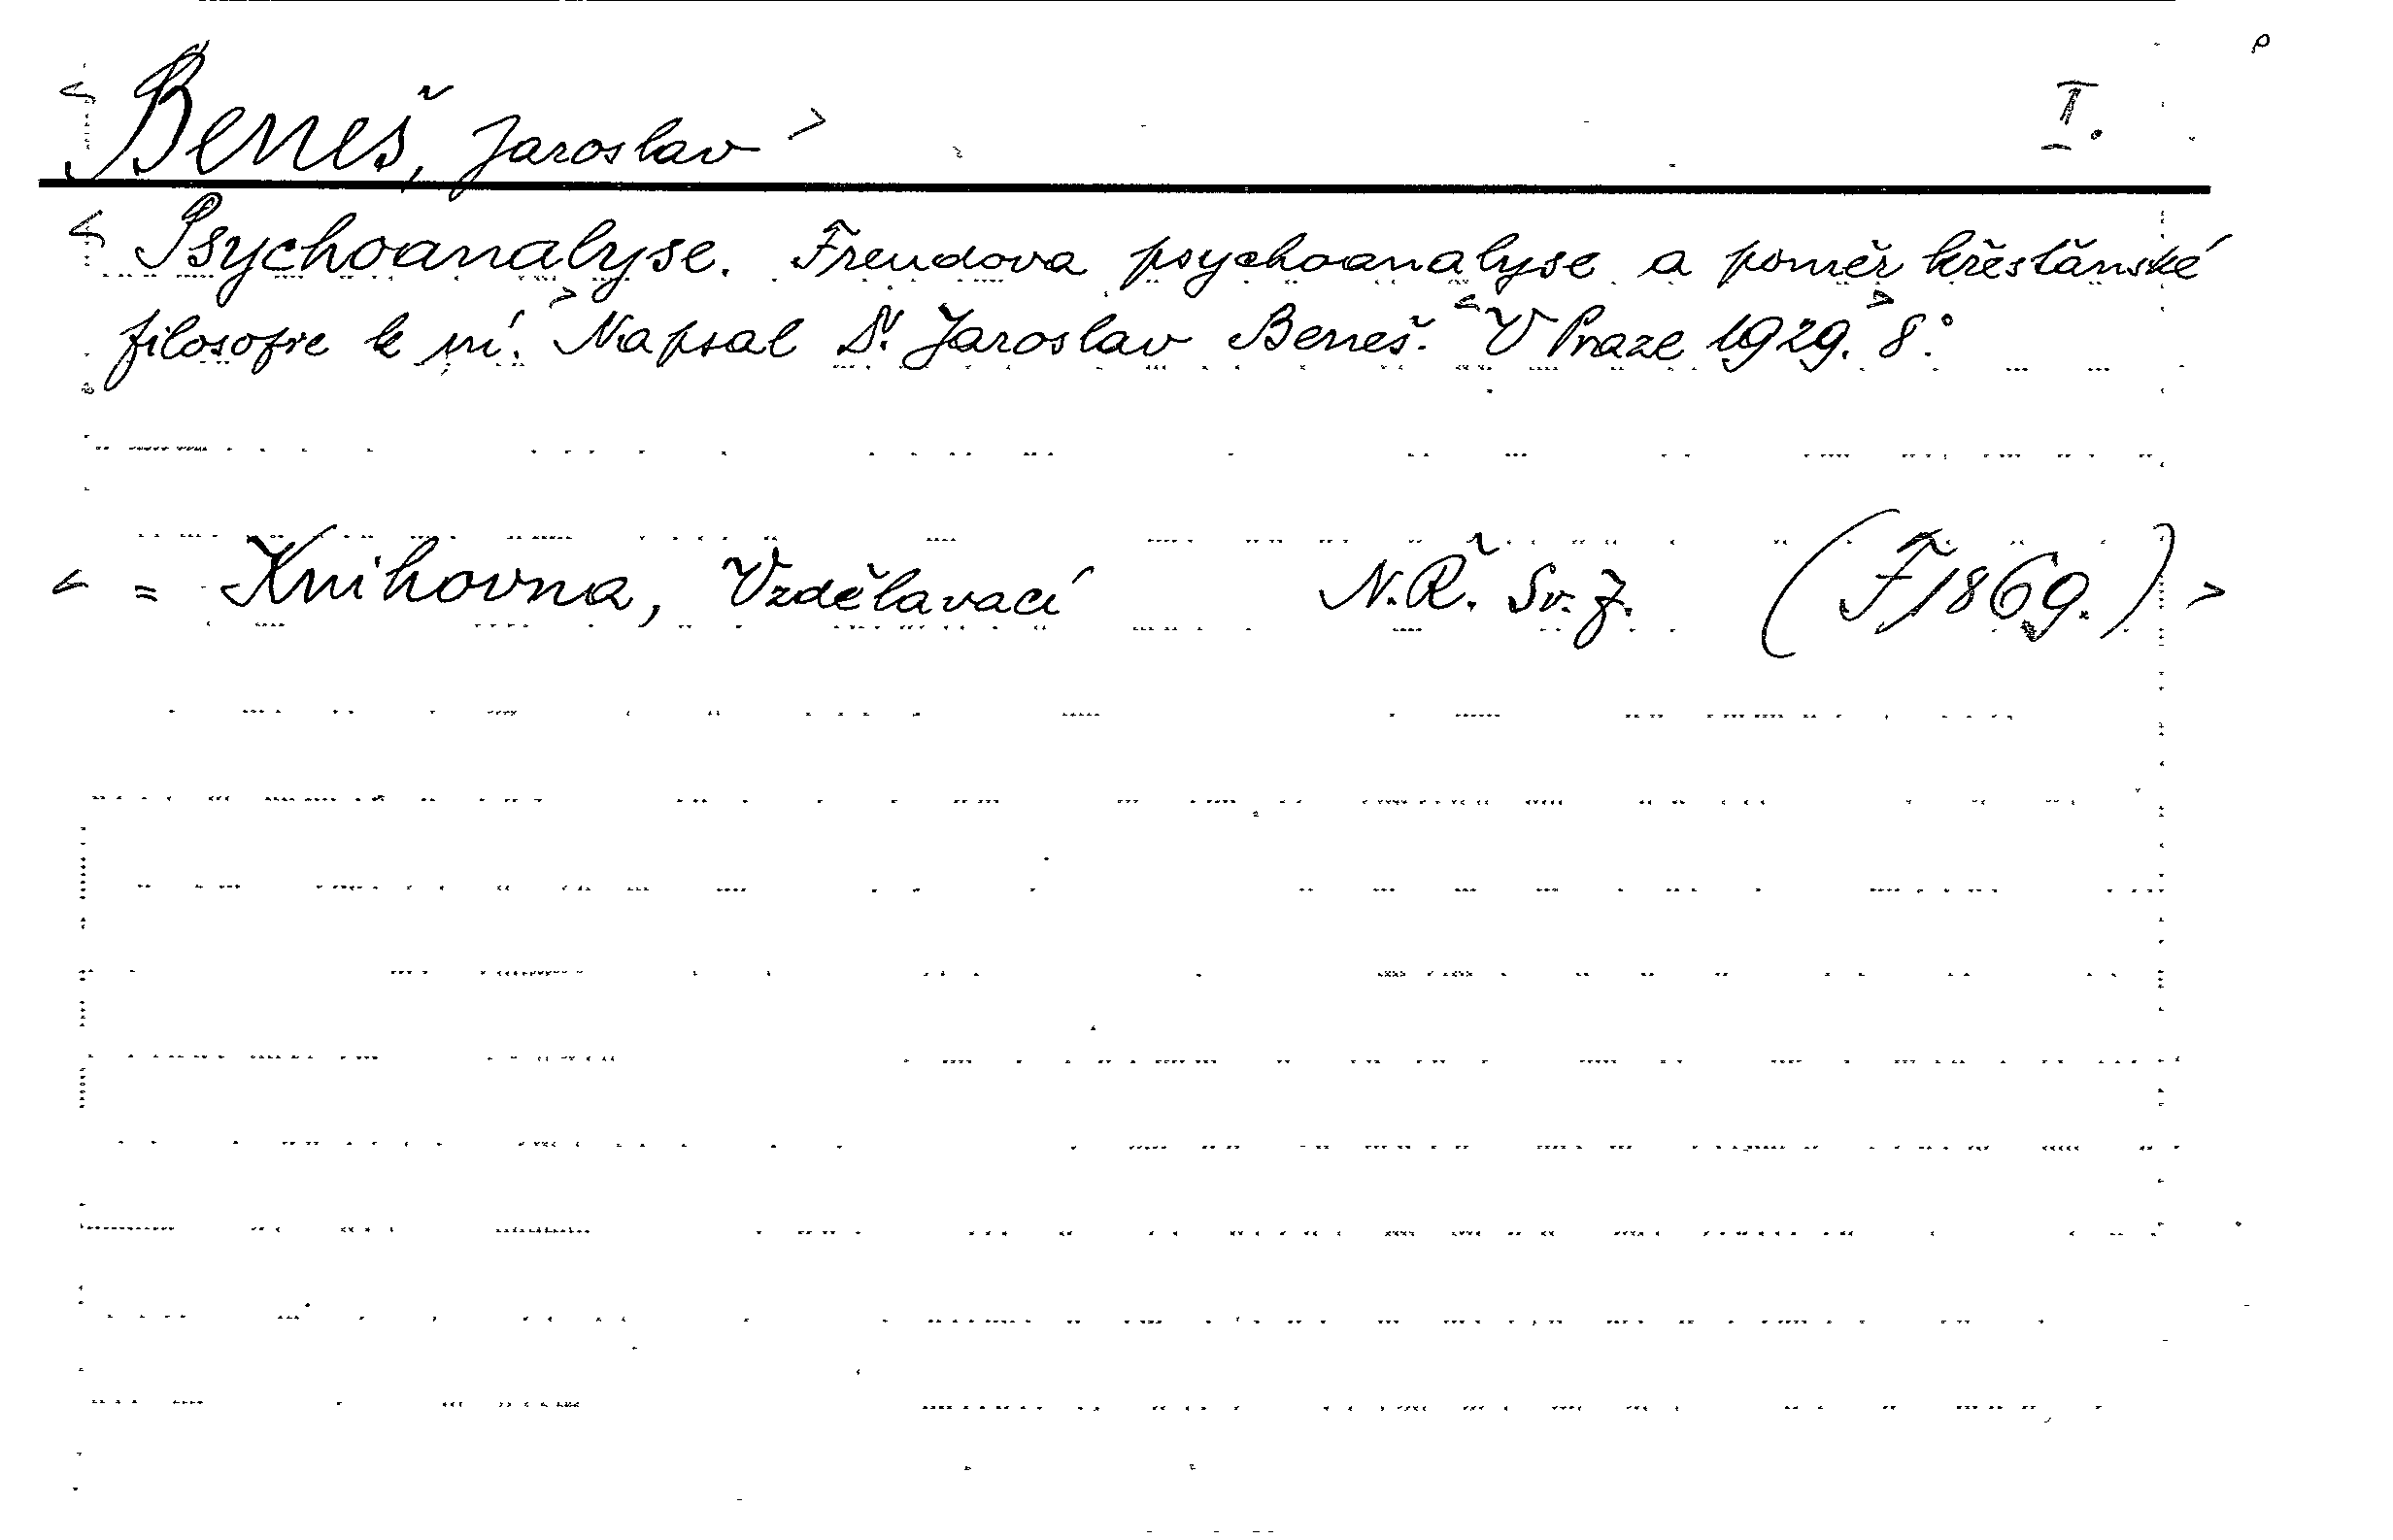 < Beneš, Jaroslav > I.
< Psychoanalyse. Freudova psychoanalyse a poměr křesťanské
filosofie k ní. > Napsal Dr. Jaroslav Beneš. < V Praze 1929. > 8°.
< = Knihovna, Vzdělávací N.Ř. Sv. 7. (F 1869.) >